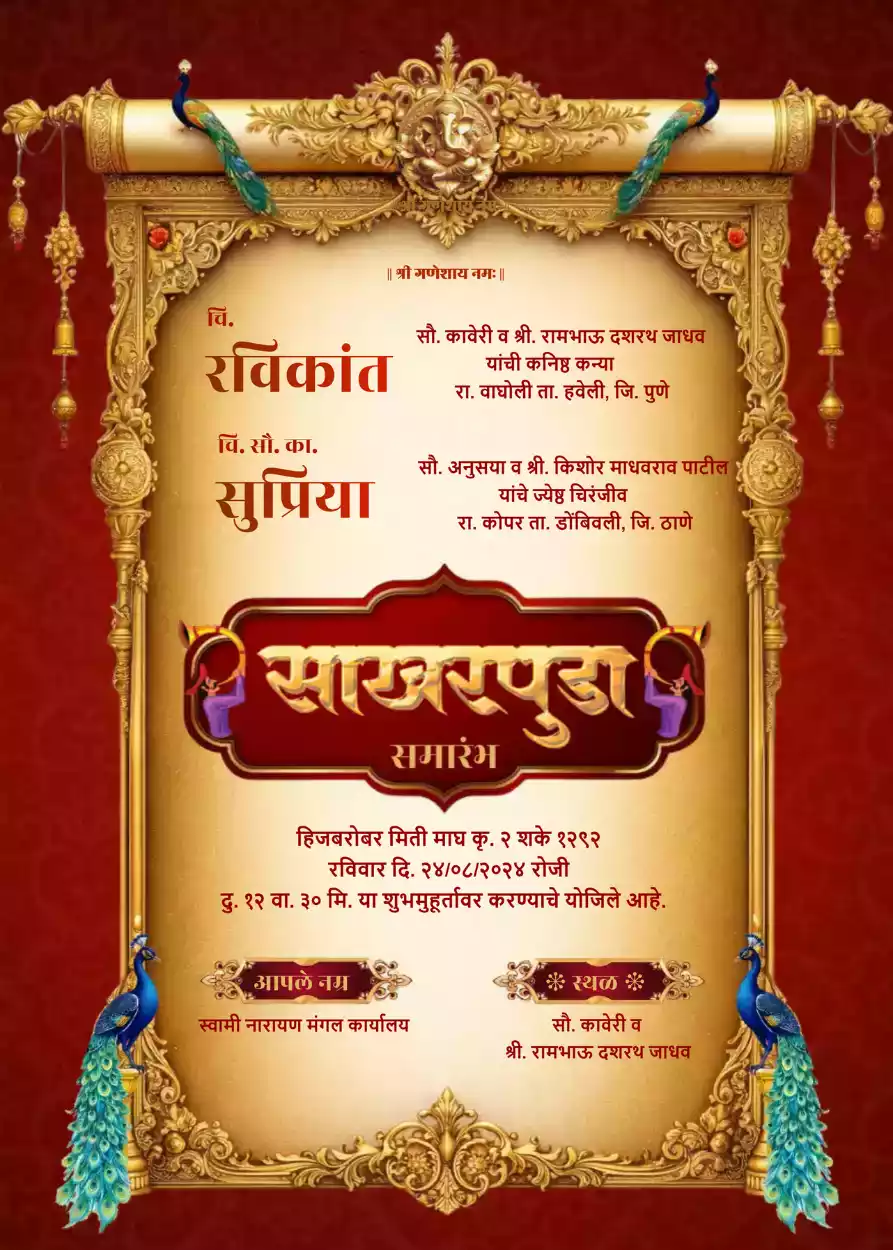 श्री गणेशाय नमः
॥ श्री गणेशाय नमः ॥
चि.
रविकांत
सौ. कावेरी व श्री. रामभाऊ दशरथ जाधव
यांची कनिष्ठ कन्या
रा. वाघोली ता. हवेली, जि. पुणे
चि. सौ. का.
सुप्रिया
सौ. अनुसया व श्री. किशोर माधवराव पाटील
यांचे ज्येष्ठ चिरंजीव
रा. कोपर ता. डोंबिवली, जि. ठाणे
साखरपुडा
समारंभ
हिजबरोबर मिती माघ कृ. २ शके १२९२
रविवार दि. २४/०८/२०२४ रोजी
दु. १२ वा. ३० मि. या शुभमुहूर्तावर करण्याचे योजिले आहे.
आपले नम्र
स्वामी नारायण मंगल कार्यालय
स्थळ
सौ. कावेरी व
श्री. रामभाऊ दशरथ जाधव